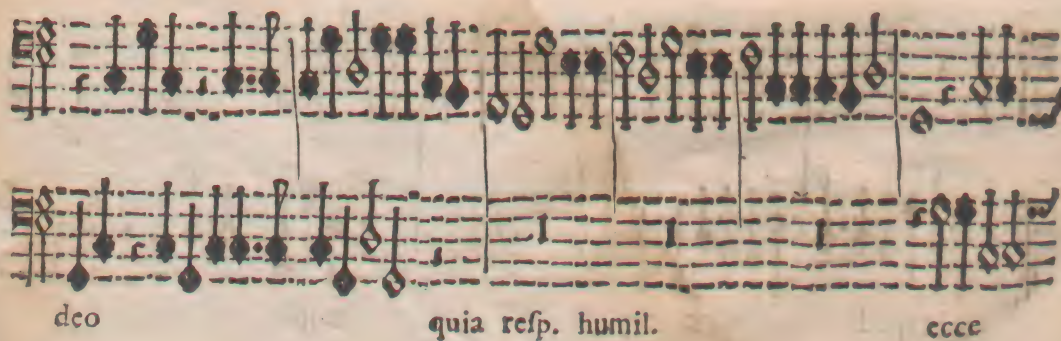 deo quia reſp. humil. ecce